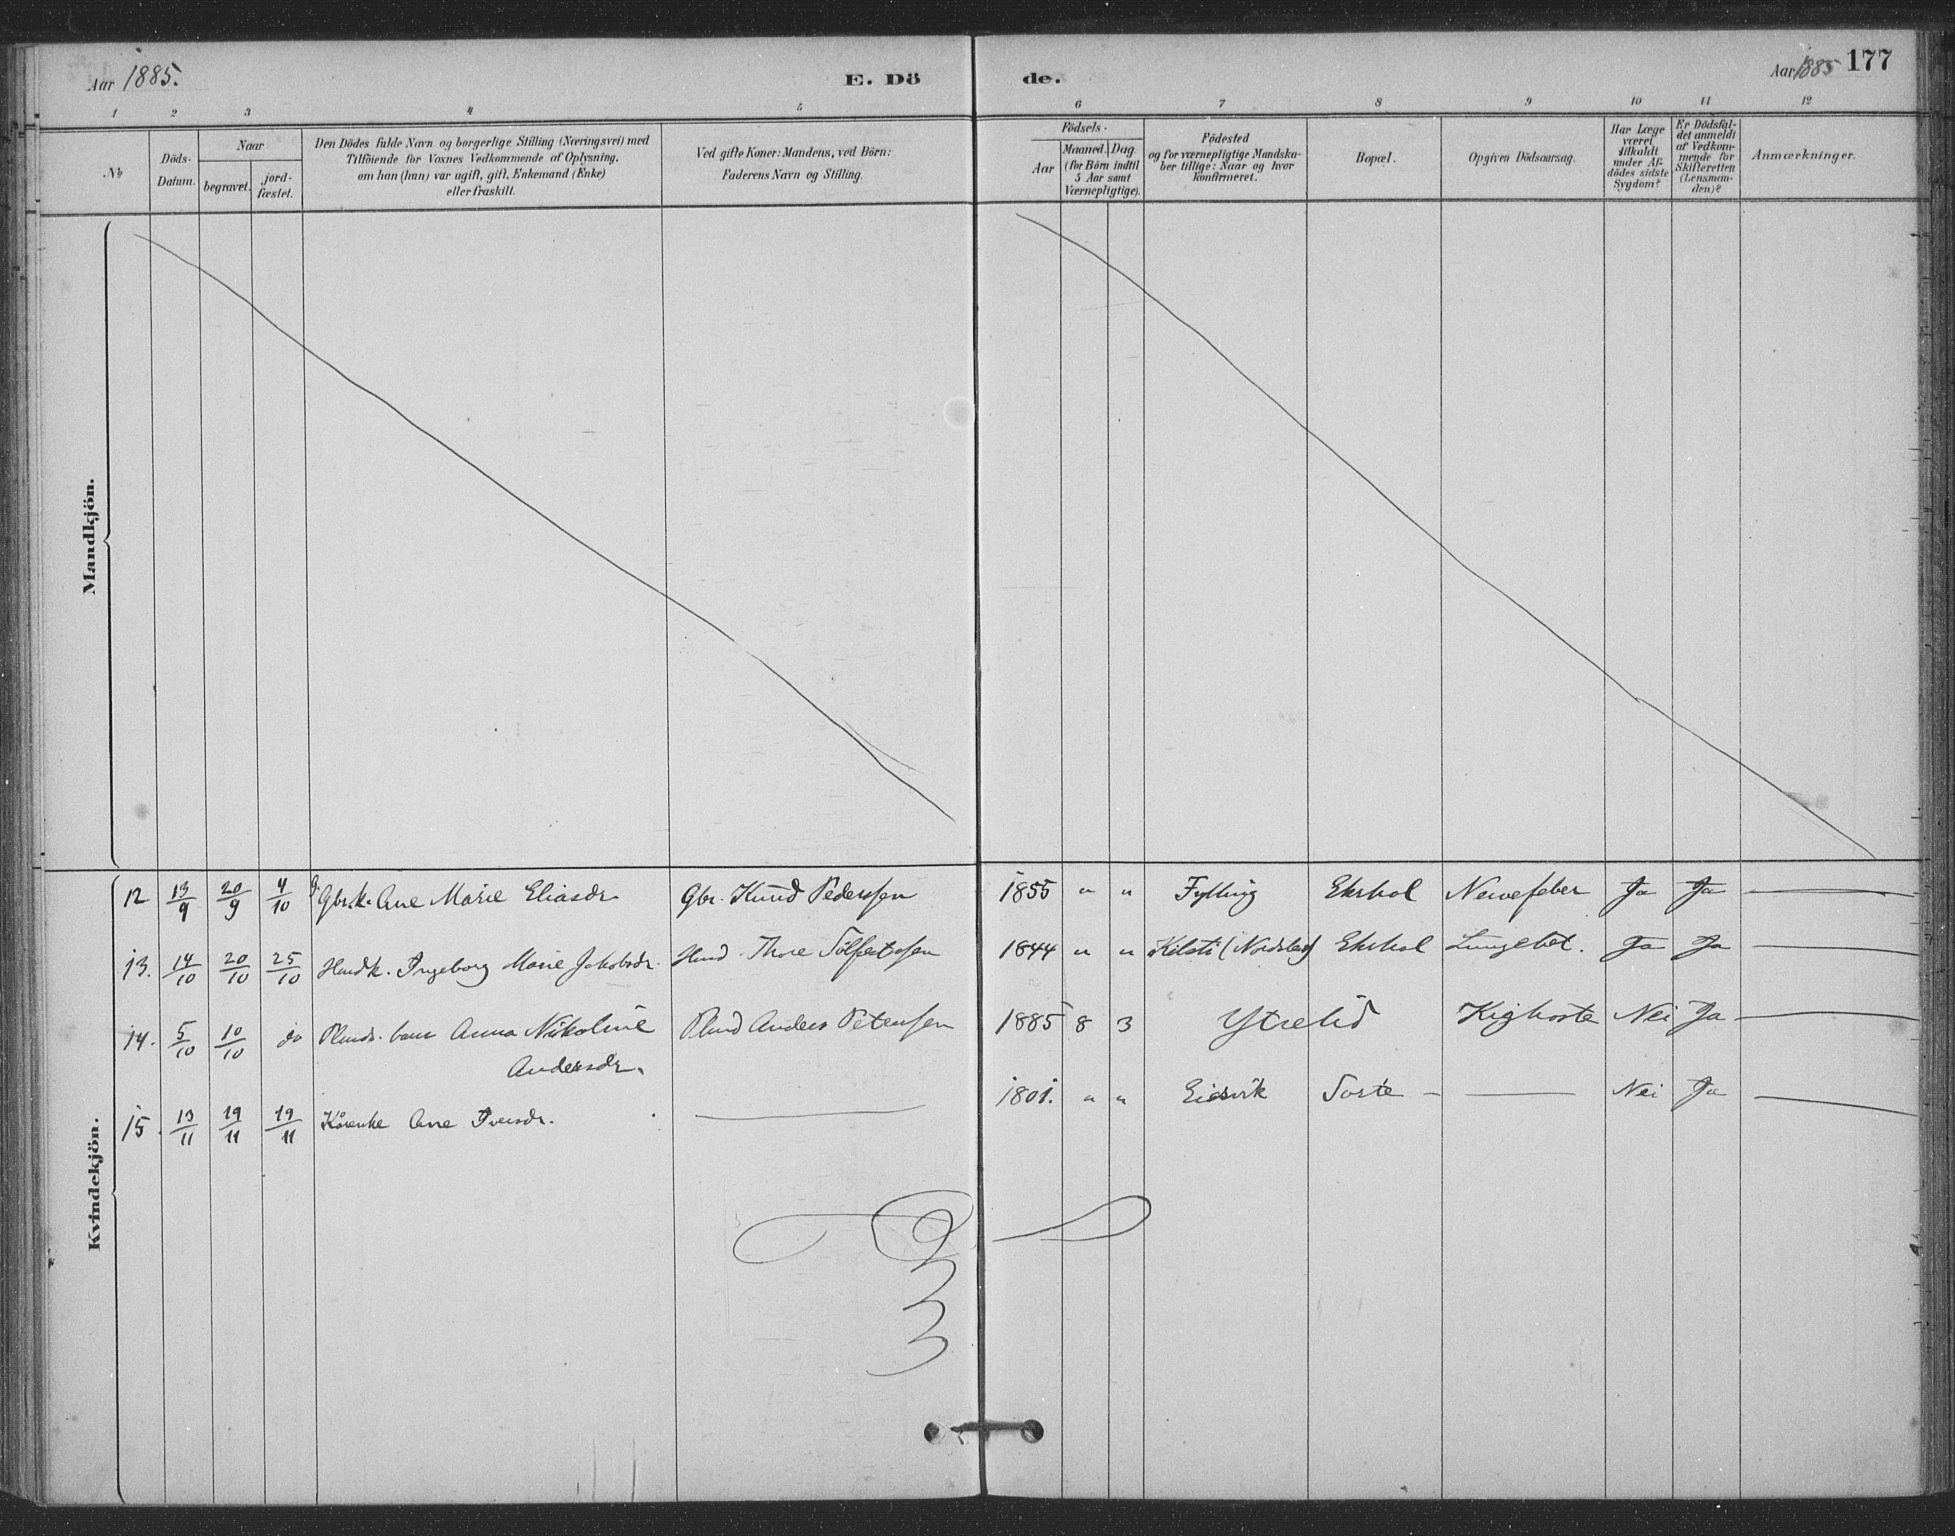 Aar 1885. E. Dö de. Aar 1885 177
1 2 3 4 5 6 7 8 9 10 11 12
№
Döds-
Datum.
Naar
begravet.
jord-
fæstet.
Den Dödes fulde Navn og borgerlige Stilling (Næringsvei) med
Tilföiende for Voxnes Vedkommende af Oplysning,
om han (hun) var ugift, gift, Enkemand (Enke)
eller fraskilt.
Ved gifte Koner: Mandens, ved Börn:
Faderens Navn og Stilling.
Födsels-
Aar
Maaned. Dag.
(for Börn indtil
5 Aar samt
Værnepligtige).
Födested
og for værnepligtige Mandska-
ber tillige: Naar og hvor
konfirmeret.
Bopæl.
Opgiven Dödsaarsag.
Har Læge
været
tilkaldt
under Af-
dödes sidste
Sygdom?
Er Dödsfal-
det anmeldt
af Vedkom-
mende for
Skifteretten
(Lensman-
den)?
Anmærkninger.
Mandkjön.
Kvindekjön.
12 13/9 20/9 4/10 Gbrk. Ane Marie Eliasdr Gbr. Knud Pederssen 1855 " " Fylling Ekrhol Nervefeber Ja Ja
13. 14/10 20/10 25/10 Husmdk. Ingeborg Marie Jakobsdr. Thore 1844 " " Ekrhol Lungebet. Ja Ja
14. 5/10 10/10 do barn Anna Nikoline Anders Petersen 1885 8 3 Ytrelid Kighoste Nei Ja
Andersdr.
15. 13/11 19/11 19/11 Kårenke Ane Iversdr. 1801. " " Eidsvik Nei Ja